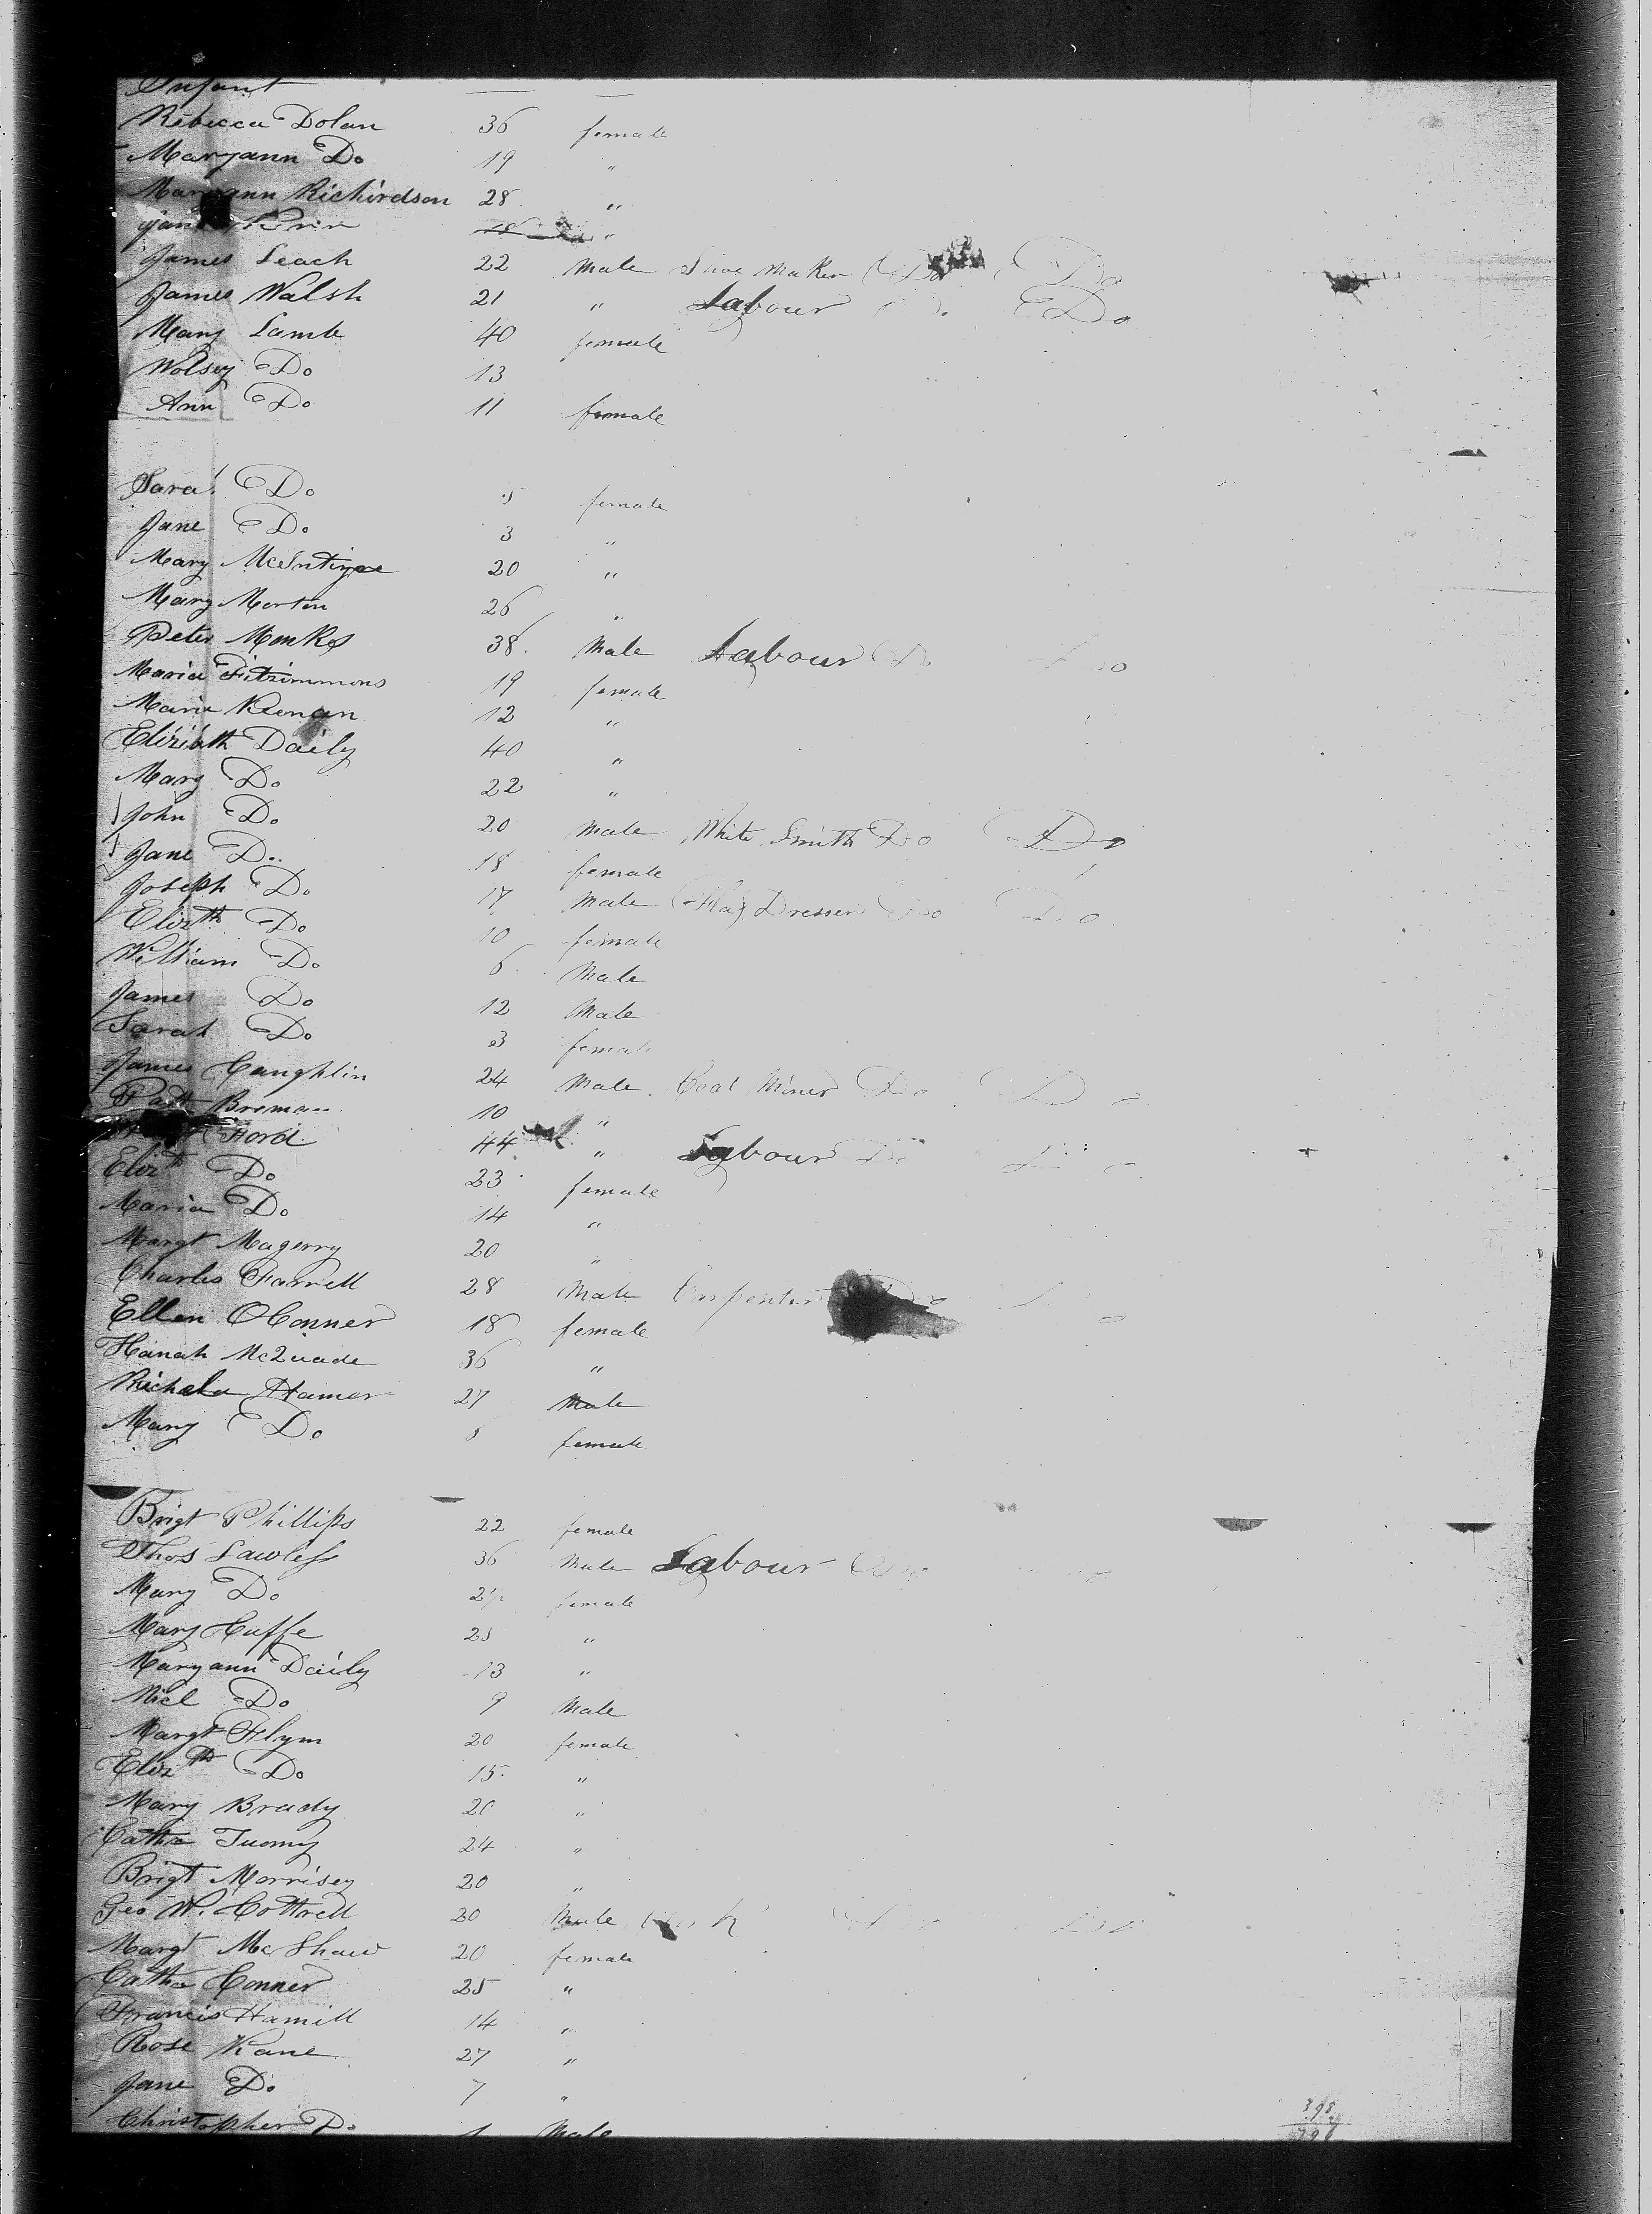 Infant — —
Rebecca Dolan 36 female
Maryann Do 19 "
Maryann Richirdson 28 "
"
James Leach 22 Male Shoe Maker Do Do
James Walsh 21 " Labour Do Do
Mary Lamb 40 female
Wolsey Do 13
Ann Do 11 female
Sarah Do 5 female
Jane Do 3 "
Mary McIntyre 20 "
Mary Morton 26 "
Peter Monks 38 Male Labour Do Do
Maria Fitzimmons 19 female
Maria Keenan 12 "
Elizibath Daily 40 "
Mary Do 22 "
John Do 20 Male White Smith Do Do
Jane Do 18 female
Joseph Do 17 Male Flax Dresser Do Do
Elizth Do 10 female
William Do 6 Male
James Do 12 Male
Sarah Do 3 female
James Caughlin 24 Male Coal Miner Do Do
Patt 10 "
Ford 44 " Labour Do Do
Elizth Do 23 female
Maria Do 14 "
Margt Magerry 20 "
Charles Farrell 28 Male Carpenter Do
Ellen OConner 18 female
Hanah McQuade 36 "
Hamer 27 Male
Mary Do female
Brigt Phillips 22 female
Thos Lawless 36 Male Labour Do
Mary Do female
Mary Cuffe 25 "
Maryann Daily 13 "
Micl Do 9 Male
Margt Flynn 20 female
Elizth Do 15 "
Mary Brady 20 "
Cathe Tuomy 24 "
Brigt Morrisey 20 "
Geo W. Cottrell 20 Male
Margt McShaw 20 female
Cathe Conner 25 "
Francis Hamill 14 "
Rose Kane 27 "
Jane Do 7 "
Christopher Do 1 Male
398